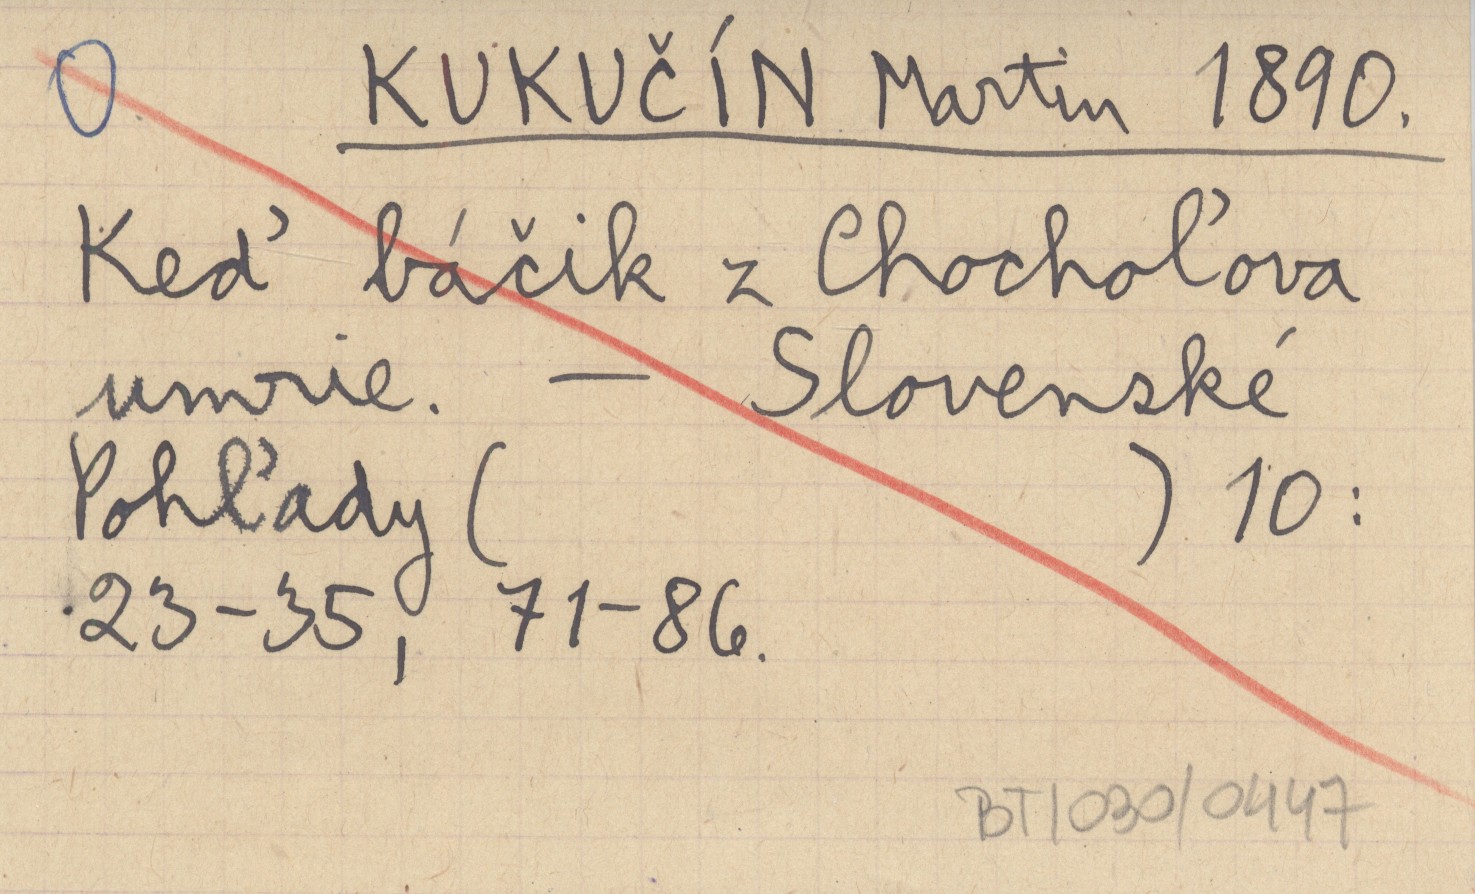 0 KUKUČÍN Martin 1890.
Keď báčik z Chochoľova
umrie. — Slovenské
Pohľady ( ) 10:
23-35, 71-86.
BT/030/0447